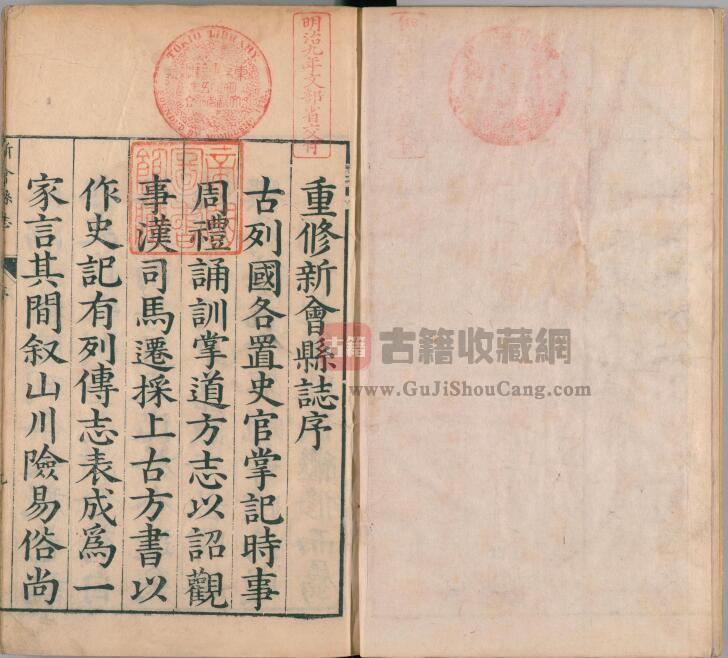 重修新會縣誌序
古列國各置史官掌記時事
周禮誦訓掌道方志以詔觀
事漢司馬遷採上古方書以
作史記有列傳志表成爲一
家言其間叙山川險易俗尚
明治九年文部省交付
TOKIO LIBRARY
新會縣志
古籍
古籍收藏網
www.GuJiShouCang.com